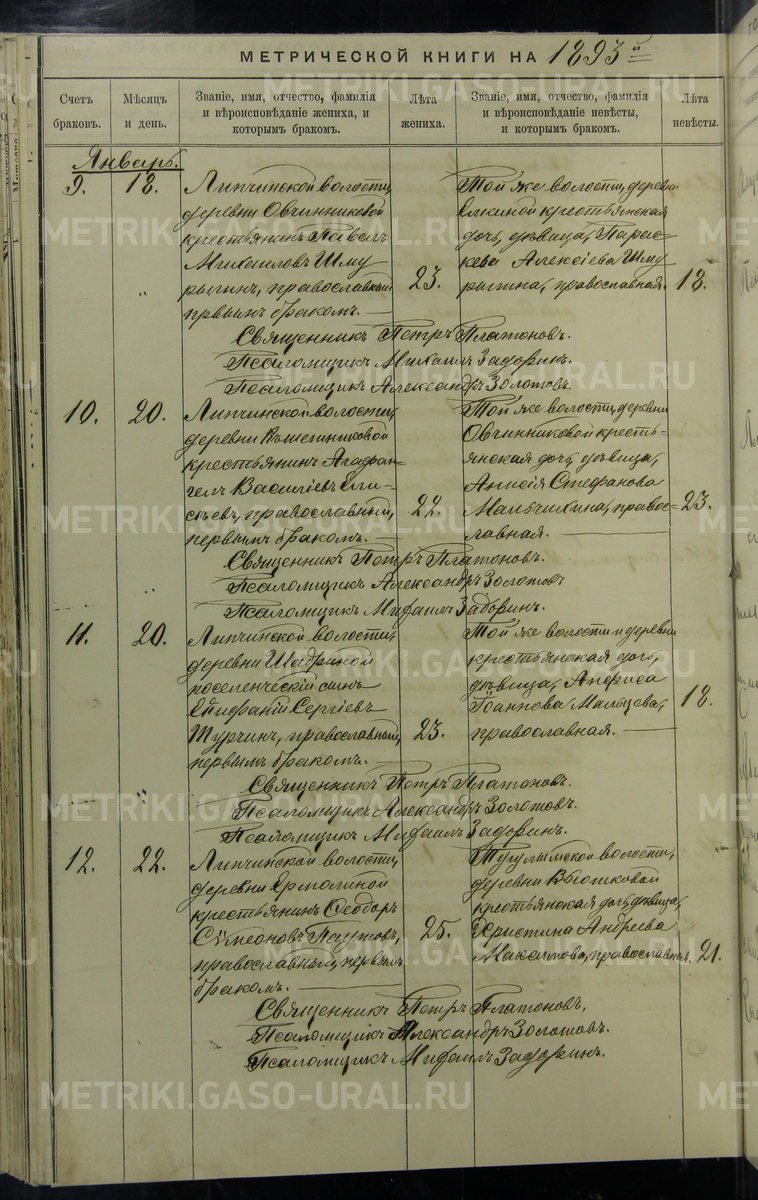 МЕТРИЧЕСКОЙ КНИГИ НА 1893й
Счетъ браковъ.
Мѣсяцъ и день.
Званіе, имя, отчество, фамилія
и вѣроисповѣданіе жениха, и
которымъ бракомъ.
Лѣта жениха.
Званіе, имя, отчество, фамилія
и вѣроисповѣданіе невѣсты,
и которымъ бракомъ.
Лѣта невѣсты.
Январь.
9. 18.
Липчинской волости,
деревни Овчинниковой
крестьянинъ Павелъ
Михаиловъ Шму
рыгинъ, православный
первымъ бракомъ.
23.
Той же волости, деревни
Елкиной крестьянская
дочь, дѣвица, Парас-
кева Алексіева Шму
рыгина, православная.
18.
Священникъ Петръ Платоновъ.
Псаломщикъ Михаилъ Задоринъ.
Псаломщикъ Александръ Золотовъ.
10. 20.
Липчинской волости,
деревни
крестьянинъ Агафан-
гелъ Василіевъ Ели-
сѣевъ, православный,
первымъ бракомъ.
22.
Той же волости, деревни
Овчинниковой кресть-
янская дочь, дѣвица,
Анисія Стефанова
Мальчихина, правос-
лавная.
23.
Священникъ Петръ Платоновъ.
Псаломщикъ Александръ Золотовъ
Псаломщикъ Михаилъ Задоринъ.
11. 20.
Липчинской волости,
деревни Шадриной
поселенческій сынъ
Епифаній Сергіевъ
Турчинъ, православный,
первымъ бракомъ.
23.
Той же волости и деревни
крестьянская дочь,
дѣвица, Анфиса
Іоаннова Мальцева,
православная.
18.
Священникъ Петръ Платоновъ.
Псаломщикъ Александръ Золотовъ.
Псаломщикъ Михаилъ Задоринъ.
12. 22.
Липчинской волости,
деревни Ермолиной
крестьянинъ Ѳеодоръ
Сѵмеоновъ Паутовъ,
православный, первымъ
бракомъ.
25.
Тугулымской волости,
деревни Вьюшковой
крестьянская дочь, дѣвица,
Христина Андреева
Максимова, православная.
21.
Священникъ Петръ Платоновъ.
Псаломщикъ Александръ Золотовъ.
Псаломщикъ Михаилъ Задоринъ.
METRIKI.GASO-URAL.RU